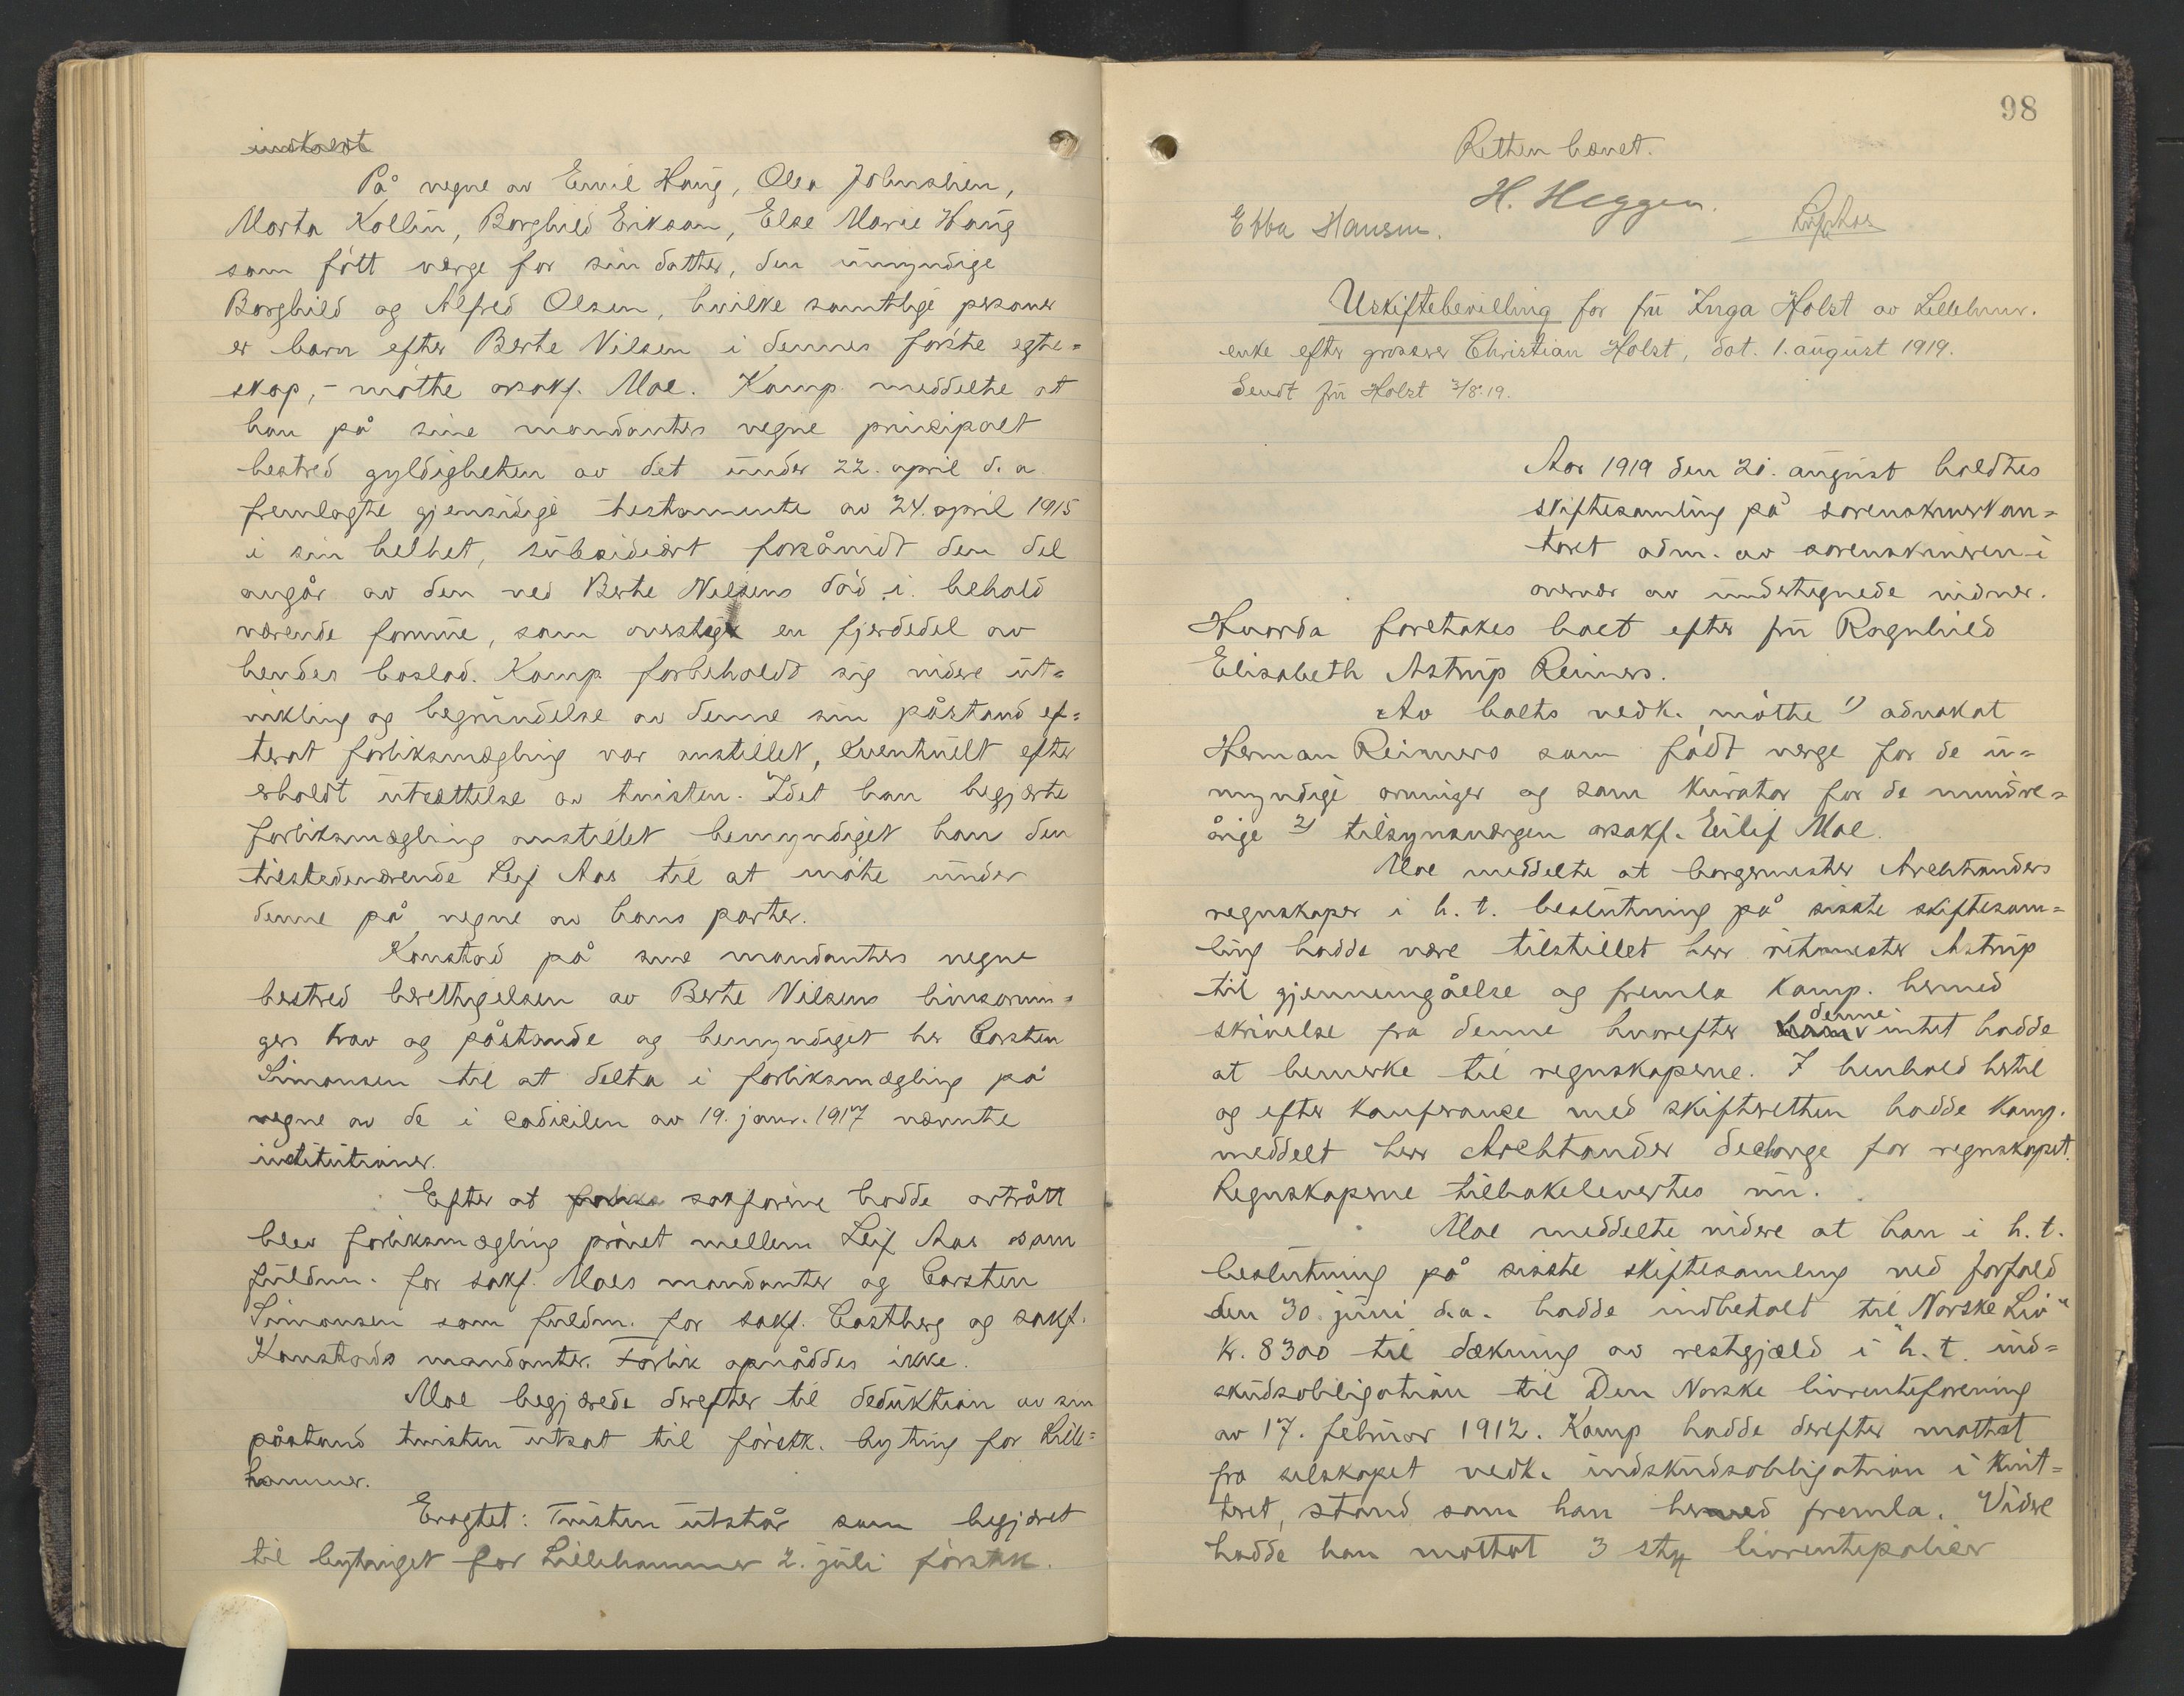 indkaldt
På vegne av Emil Haug, Olea Johnshien,
Marta Kollin, Borghild Eriksen, Else Marie Haug
som fött verge for sin datter, den umyndige
Borghild og Alfred Olsen, hvilke samtlige personer
er barn efter Berte Nilsen i dennes förste egte=
skap, - mötte orsakf. Moe. Komp. meddelte at
han på sine mandanters vegne principalt
bestred gyldigheten av det under 22. april d. a.
fremlagte gjensidige testamente av 24. april 1915
i sin helhet, subsidiært forsåvidt den del
angår av den ved Berte Nilsens död i behold
værende formue, som overstiger en fjerdedel av
hendes boslod. Komp. forbeholdt sig videre ut=
vikling og begrundelse av denne sin påstand ef=
terat forliksmægling var anstillet, eventuelt efter
erholdt utsættelse av tvisten. Idet han begjærte
forliksmægling anstillet bemyndiget han den
tilstedeværende Leif Aas til at möte under
denne på vegne av hans parter.
Konstad på sine mandanters vegne
bestred berettigelsen av Berte Nilsens livsarvin=
gers krav og påstande og bemyndiget hr Carsten
Simonsen til at delta i forliksmægling på
vegne av de i codicilen av 19. janr. 1917 nævnte
institutioner.
Efter at sakförerne hadde avtrått
blev forliksmægling prövet mellem Leif Aas som
fuldm. for sakf. Moes mandanter og Carsten
Simonsen som fuldm. for sakf. Castberg og sakf.
Konstads mandanter. Forlik opnåddes ikke.
Moe begjærede derefter til deduktion av sin
påstand tvisten utsat til förstk. byting for Lille=
hammer.
Eragtet: Tvisten utstår som begjæret
til bytinget for Lillehammer 2. juli förstk.
98
Retten hævet.
H. Heggen.
Ebba Hansen. Leif Aas
Uskiftebevilling for fru Inga Holst av Lillehmr.
enke efter grosserer Christian Holst, dat. 1. august 1919.
Sendt fru Holst 3/8.19.
Aar 1919 den 20. august holdtes
skiftesamling på sorenskriverkon=
toret adm. av sorenskriveren i
overvær av undertegnede vidner.
Hvorda foretokes boet efter fru Ragnhild
Elisabeth Astrup Reimers.
Av boets vedk. mötte 1) advokat
Herman Reimers som födt verge for de u=
myndige arvinger og som kurator for de mindre=
årige 2) tilsynsvergen orsakf. Eilif Moe.
Moe meddelte at borgermester Arctanders
regnskaper i h. t. beslutning på sisste skiftesam=
ling hadde være tilstillet herr ritmester Astrup
til gjennemgåelse og fremla komp. hermed
skrivelse fra denne hvorefter denne intet hadde
at bemerke til regnskaperne. I henhold hertil
og efter konferanse med skifteretten hadde komp.
meddelt herr Arctander decharge for regnskapet.
Regnskaperne tilbakelevertes nu.
Moe meddelte videre at han i h. t.
beslutning på sisste skiftesamling ved forfald
den 30. juni d.a. hadde indbetalt til "Norske Liv"
kr. 8300 til dækning av restgjæld i h. t. ind=
skudsobligation til Den Norske livrenteforening
av 17. februar 1912. Komp hadde derefter mottat
fra selskapet vedk. indskudsobligation i kvit=
teret stand som han hermed fremla. Videre
hadde han mottat 3 stk livrentepolicer